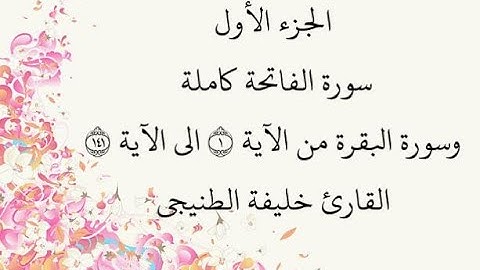 الجزء الأول
سورة الفاتحة كاملة
وسورة البقرة من الآية ١ الى الآية ١٤١
القارئ خليفة الطنيجى